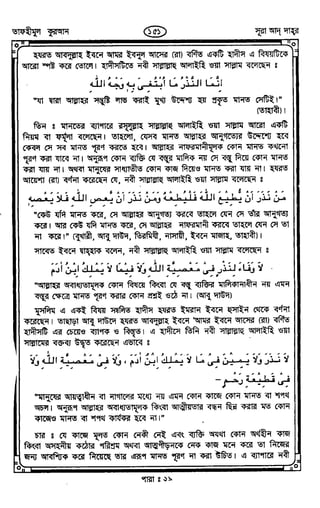 তাফহীমুল কুরআন
১৫১
সূরা আদ দাহর
হযরত আবদুল্লাহ ইবনে আমর ইবনুল আসের (রা) বর্ণিত একটি হাদীস এ বিষয়টিকে
আরো স্পষ্ট করে তোলে। হাদীসটিতে নবী সাল্লাল্লাহু আলাইহি ওয়া সাল্লাম বলেছেন ঃ
اِنَّمَا النَّذْرُ مَا ابْتُغِىَ بِهِ وَجْهُ اللّٰهِ
"যা দ্বারা আল্লাহর সন্তুষ্টি লাভ করাই মূখ্য উদ্দেশ্য হয় প্রকৃত মানত সেটিই।"
(তাহাবী)।
তিন ঃ মানতের ব্যাপারে রসূলুল্লাহ সাল্লাল্লাহু আলাইহি ওয়া সাল্লাম আরো একটি
নিয়ম বা ফর্মুলা বলেছেন। তাহলো, যেসব মানত আল্লাহর আনুগত্যের উদ্দেশ্যে হবে
কেবল সে সব মানত পূরণ করতে হবে। আল্লাহর নাফরমানীমূলক কোন মানত কখনো
পূরণ করা যাবে না। অনুরূপ কোন ব্যক্তি যে বস্তুর মালিক নয় সে বস্তু দিয়ে কোন মানত
করা যায় না। অথবা মানুষের সাধ্যাতীত কোন কাজ দিয়েও মানত করা যায় না। হযরত
আয়েশা (রা) বর্ণনা করেছেন যে, নবী সাল্লাল্লাহু আলাইহি ওয়া সাল্লাম বলেছেন ঃ
مَنْ نَذَرَ اَنْ يُّطِيْعَ اللّٰهَ فَلْيُطِعْهُ وَمَنْ نَذَرَ اَنْ يَّعْصِىَ اللّٰهَ فَلَا يَعْصِهِ
"কেউ যদি মানত করে, সে আল্লাহর আনুগত্য করবে তাহলে যেন সে তাঁর আনুগত্য
করে। আর কেউ যদি মানত করে, সে আল্লাহর নাফরমানী করবে তাহলে যেন সে তা
না করে।" (বুখারী, আবু দাউদ, তিরমিযী, নাসায়ী, ইবনে মাজাহ, তাহাবী)।
সাবেত ইবনে দ্বাহহাক বলেন, নবী সাল্লাল্লাহু আলাইহি ওয়া সাল্লাম বলেছেন ঃ
لَا وَفَاءَ لِنَذْرٍ فِىْ مَعْصِيَةِ اللّٰهِ وَلَا فِيْمَا لَا يَمْلِكُ ابْنُ اٰدَمَ
"আল্লাহর অবাধ্যতামূলক কোন বিষয়ে কিংবা যে বস্তু ব্যক্তির মালিকানাধীন নয় এমন
বস্তুর ক্ষেত্রে মানত পূরণ করার কোন প্রশ্নই ওঠে না। (আবু দাউদ)
মুসলিম এ একই বিষয় সম্বলিত হাদীস হযরত ইমরান ইবনে হুসাইন থেকে বর্ণনা
করেছেন। তাছাড়া আবু দাউদে হযরত আবদুল্লাহ ইবনে 'আমর ইবনে আসের (রা) বর্ণিত
হাদীসটি এর চেয়েও ব্যাপক ও বিস্তৃত। এ হাদীসে তিনি নবী সাল্লাল্লাহু আলাইহি ওয়া
সাল্লামের বক্তব্য উদ্ধৃত করেছেন এভাবে ঃ
لَا نَذْرَ وَلَا يَمِيْنَ فِىْ مَا لَا يَمْلِكُ ابْنُ اٰدَمَ، وَلَا فِىْ مَعْصِيَةِ اللّٰهِ وَلَا
فِىْ قَطِيْعَةِ رَحِمٍ -
"মানুষের আয়ত্বাধীন বা নাগালের মধ্যে নয় এমন কোন কাজে কোন মানত বা শপথ
অচল। অনুরূপ আল্লাহর অবাধ্যতামূলক কিংবা আত্মীয়তার বন্ধন ছিন্ন করার মত কোন
কাজেও মানত বা শপথ কার্যকর হবে না।"
চার ঃ যে কাজে মূলত কোন নেকী নেই এবং ব্যক্তি অযথা কোন অর্থহীন কাজ
কিংবা অসহনীয় কঠোর পরিশ্রম অথবা আত্মপীড়নকে নেক কাজ মনে করে তা নিজের
জন্য আবশ্যিক করে নিয়েছে তার এরূপ মানত পূরণ না করা উচিত। এ ব্যাপারে নবী
পারা ঃ ২৯